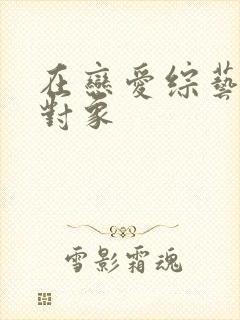 在戀愛综藝
對象
雪影霜魂